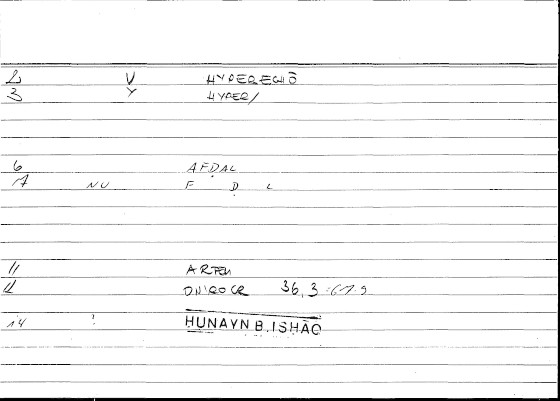 2 V HYPERECHŌ
3 Y HYPER/
6 AFḌAL
7 NU F Ḍ L
11 ARTEM
12 ONIROCR 36,3
14 ! HUNAYN B. ISHĀQ